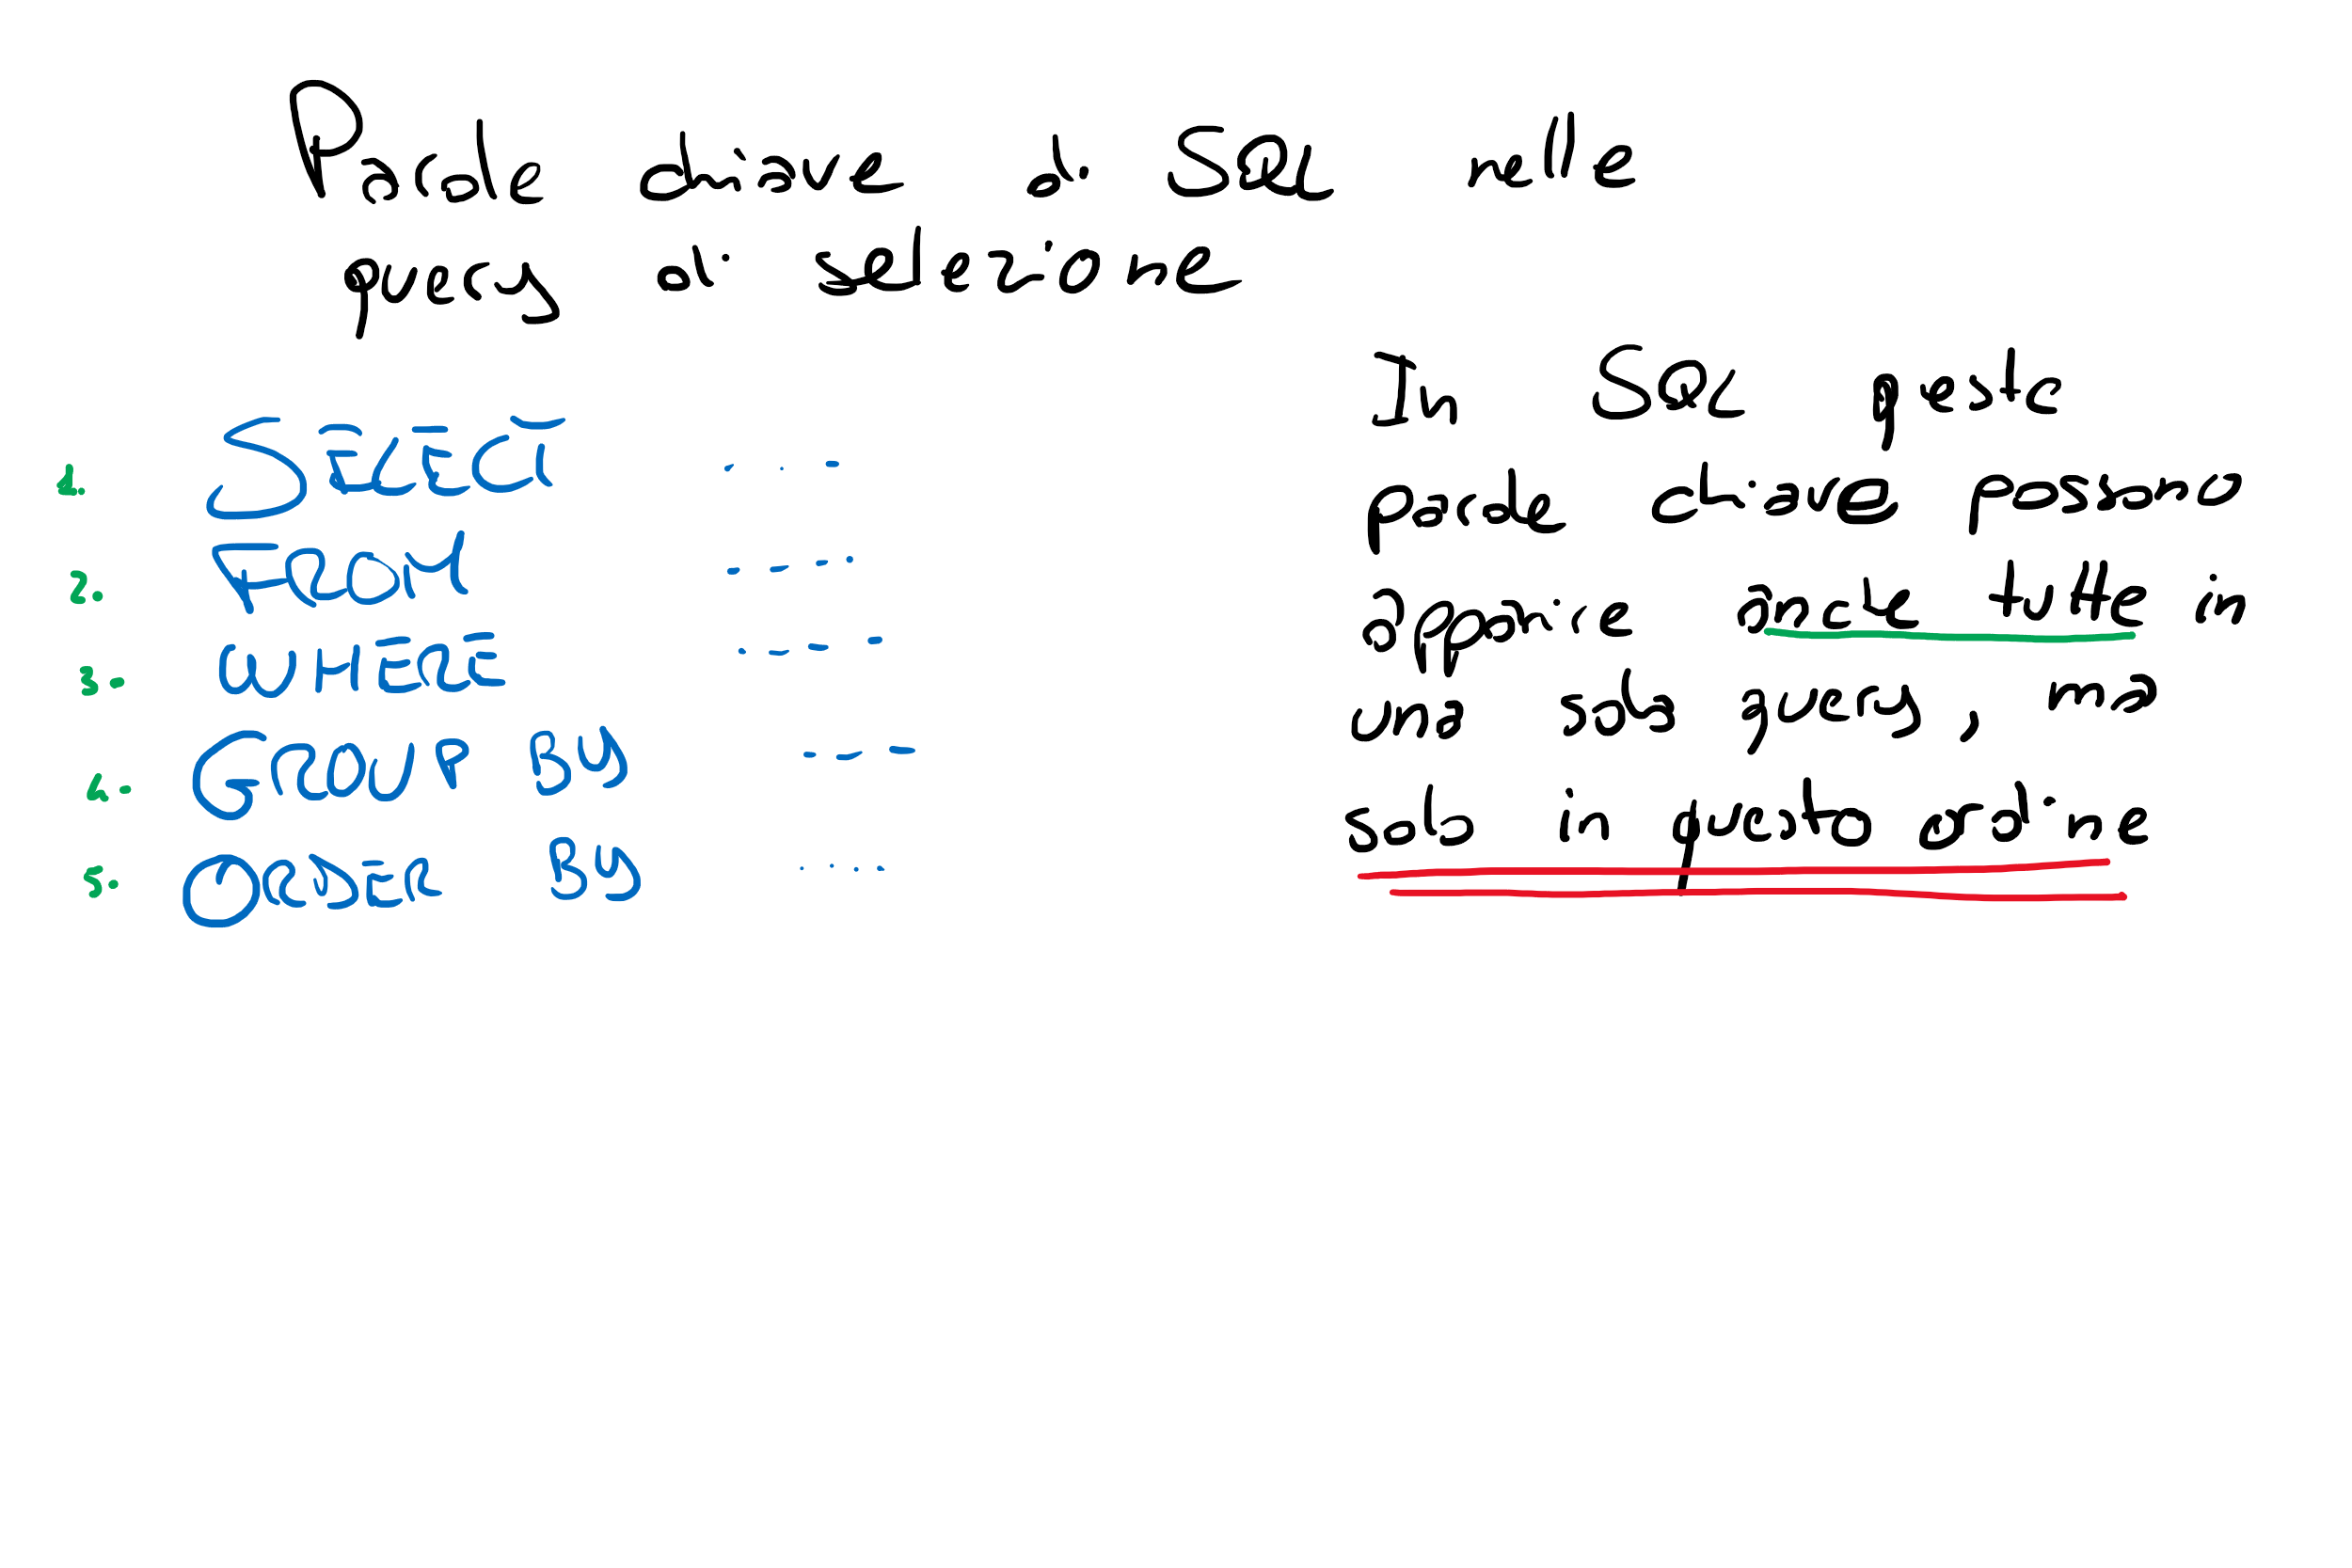 Parole chiave di SQL nelle
query di selezione
1. SELECT ....
2. FROM ....
3. WHERE ....
4. GROUP BY ....
5. ORDER BY ....
In SQL queste
parole chiave possono
apparire anche tutte in
una sola query, ma
solo in questo ordine